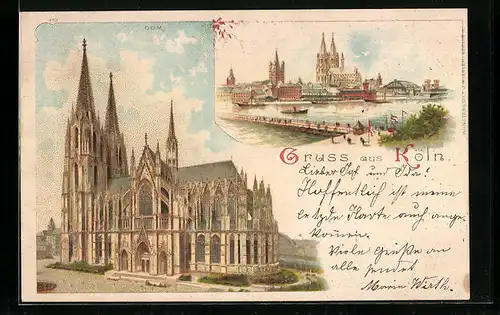 DOM.
Gruss aus Köln.
Lieber und Ida!
Hoffentlich ist meine
letzte Karte auch ange-
kommen.
Viele Grüße an
alle sendet
Maria Wirth.